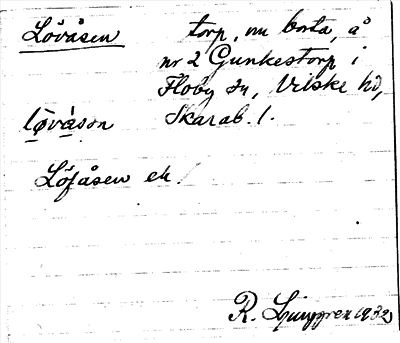 Lövåsen torp, nu borta, å
nr 2 Gunkestorp i
Floby sn, Vilske hd,
løvåson Skarab. l.
Löfåsen ek.
R. Ljunggren 1932